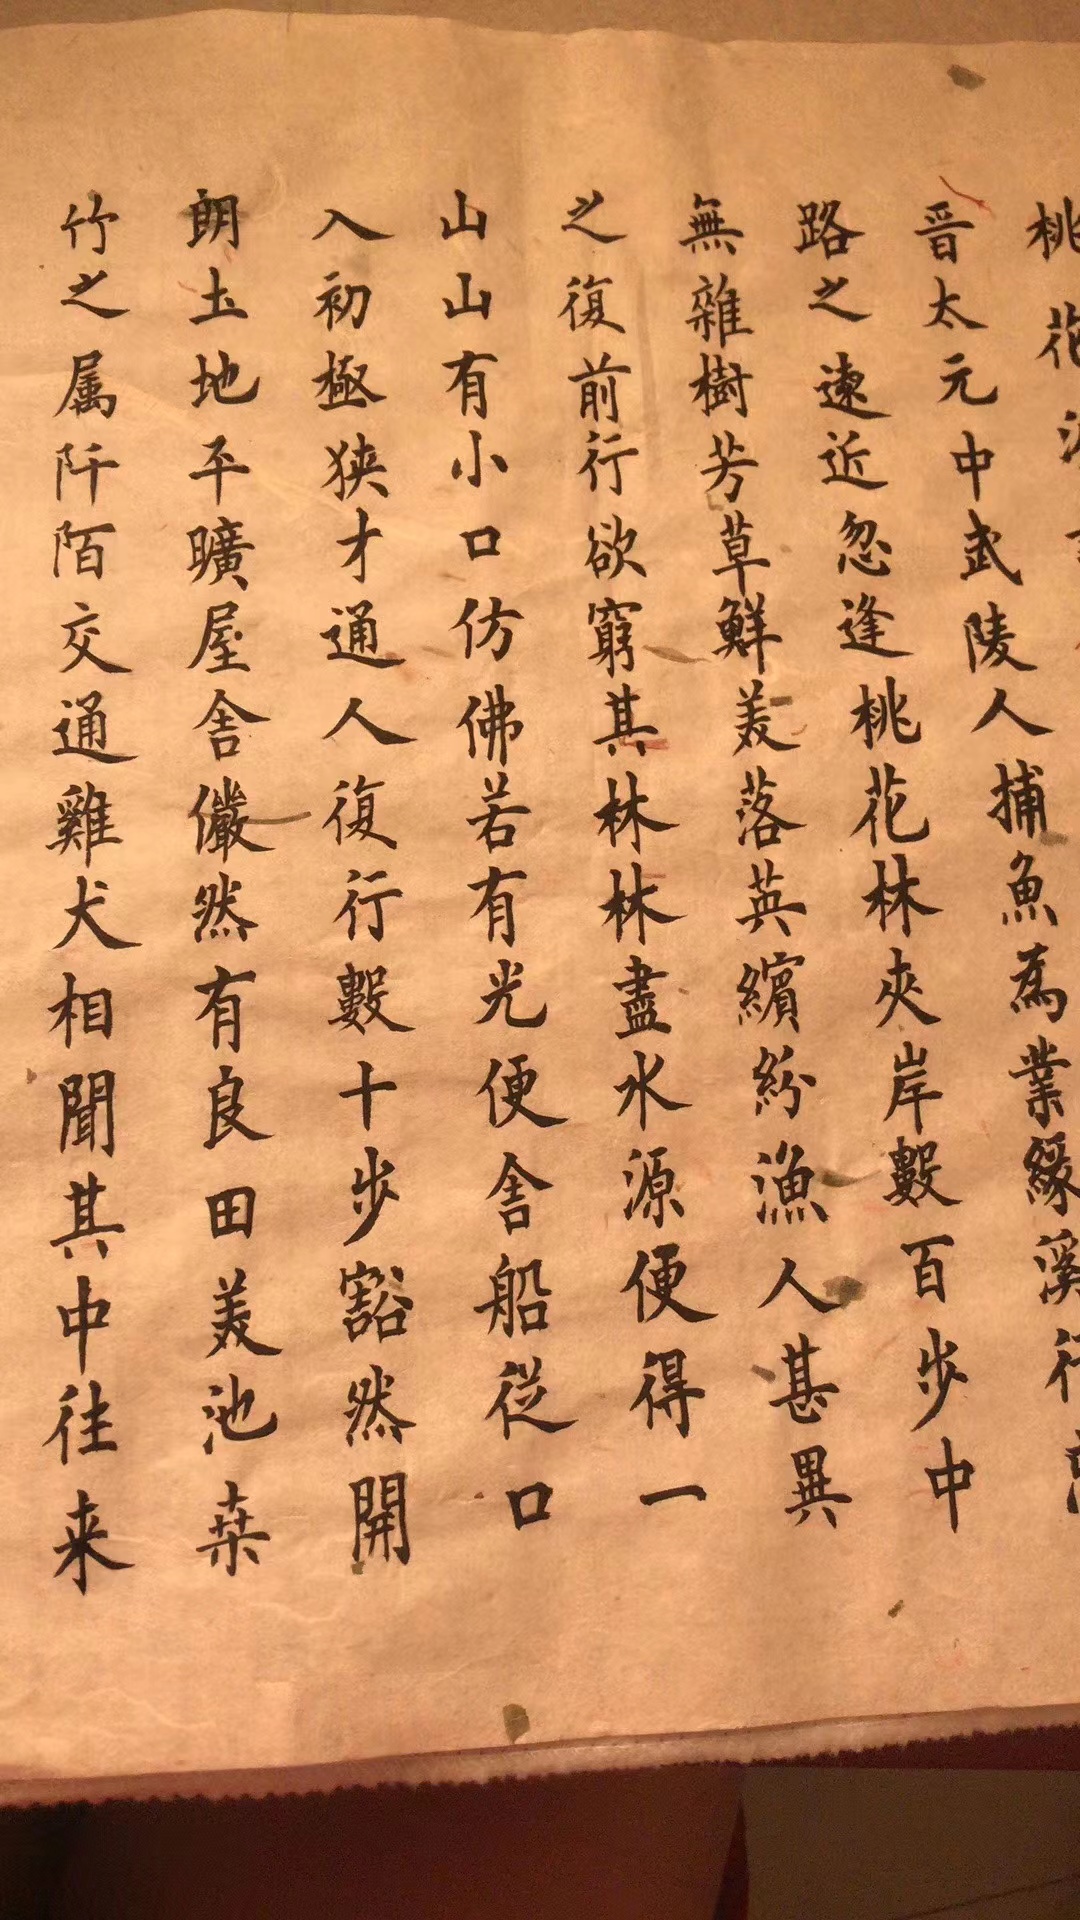 桃花源
晋太元中武陵人捕魚為業緣溪行忘
路之遠近忽逢桃花林夾岸數百步中
無雜樹芳草鮮美落英繽紛漁人甚異
之復前行欲窮其林林盡水源便得一
山山有小口仿佛若有光便舍船從口
入初極狹才通人復行數十步豁然開
朗土地平曠屋舍儼然有良田美池桒
竹之属阡陌交通雞犬相聞其中往来